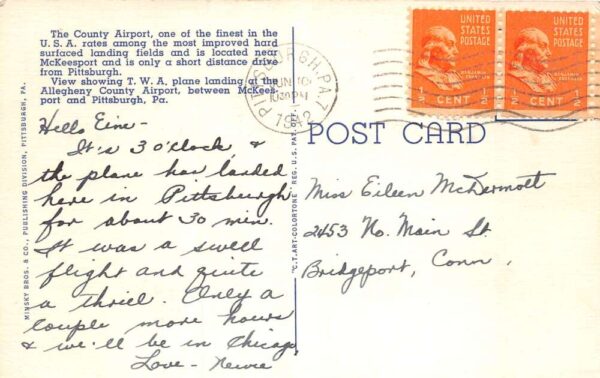 The County Airport, one of the finest in the
U. S. A. rates among the most improved hard
surfaced landing fields and is located near
McKeesport and is only a short distance drive
from Pittsburgh.
View showing T. W. A. plane landing at the
Allegheny County Airport, between McKees-
port and Pittsburgh, Pa.
Hello Eine-
It's 3 o'clock &
the plane has landed
here in Pittsburgh
for about 30 min.
It was a swell
flight and quite
a thrill. Only a
couple more hours
& we'll be in Chicago
Love -
MINSKY BROS. & CO., PUBLISHING DIVISION, PITTSBURGH, PA.
"C.T. ART-COLORTONE" REG. U.S. PAT. OFF.
PITTSBURGH, PA. 7
JUN 10
1942
UNITED
STATES
POSTAGE
BENJAMIN
FRANKLIN
½ CENT ½
UNITED
STATES
POSTAGE
BENJAMIN
FRANKLIN
½ CENT ½
POST CARD
Miss Eileen McDermott
2453 No. Main St.
Bridgeport, Conn.